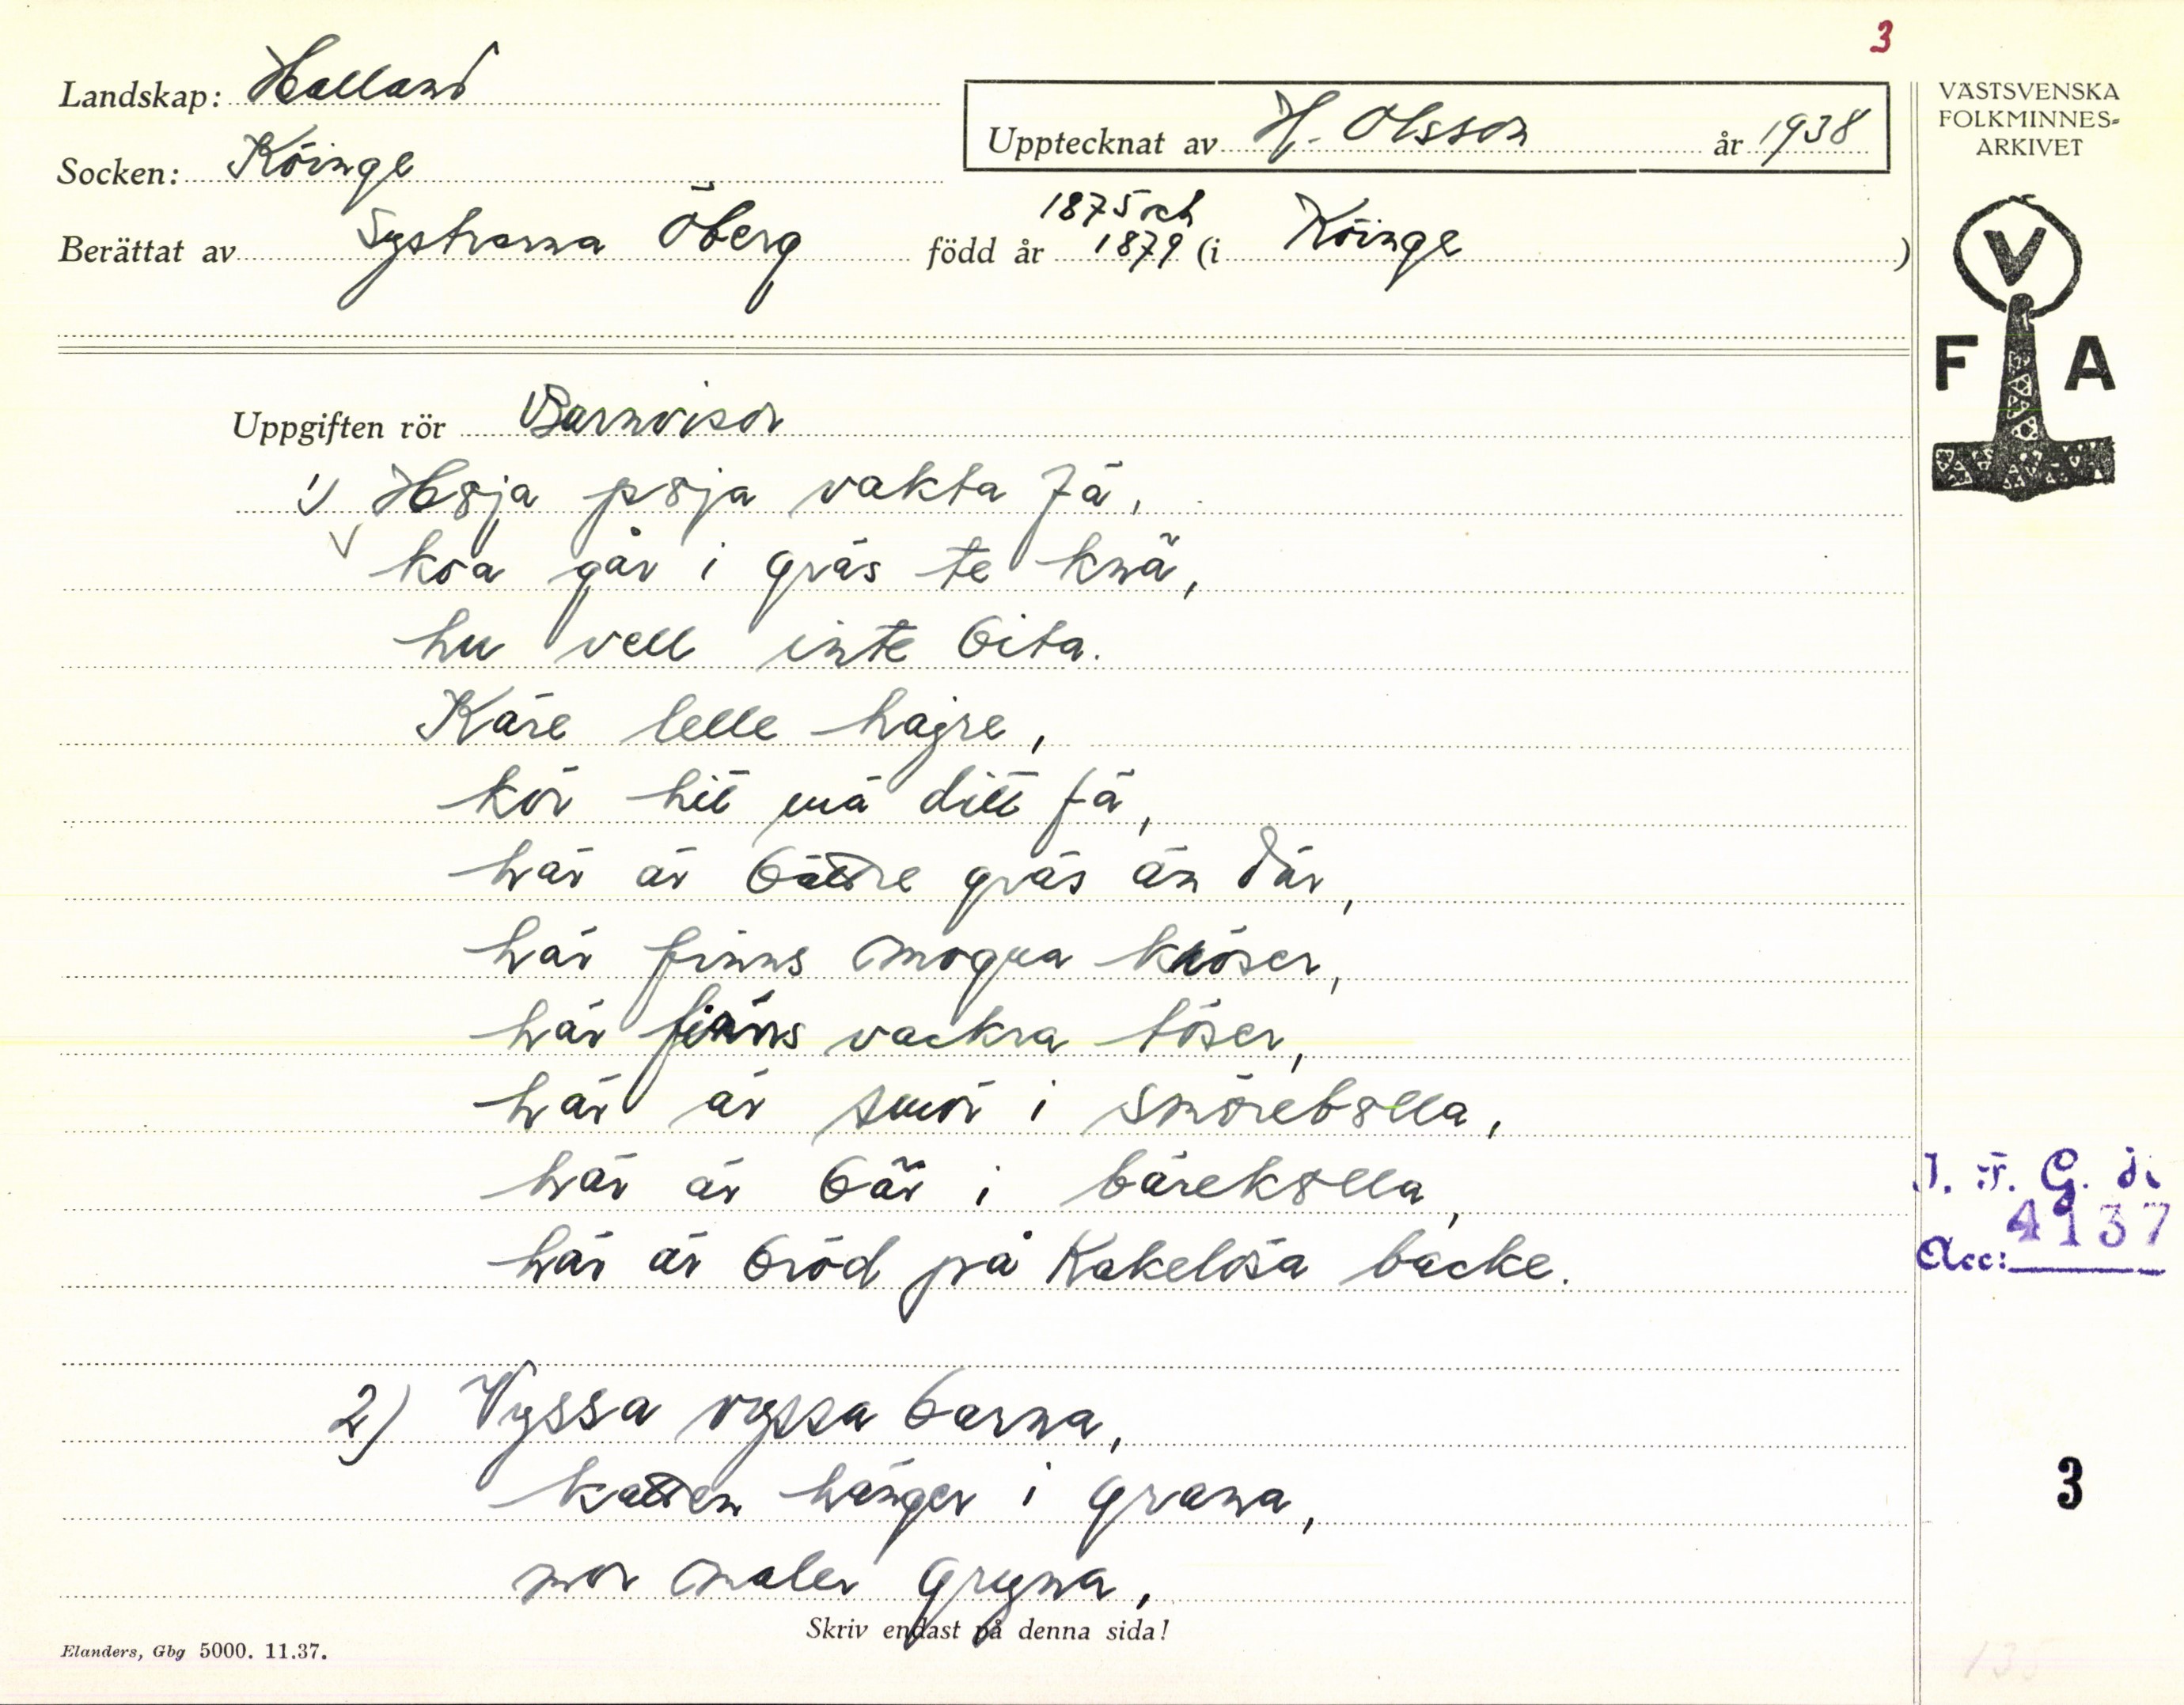 3
Landskap: Halland
Upptecknat av H. Olsson år 1938
Socken: Köinge
Berättat av Systrarna Öberg född år 1875 och 1879 (i Köinge)
VÄSTSVENSKA
FOLKMINNES-
ARKIVET
V
F A
Uppgiften rör Barnvisor
1) Hoja poja vakta fä,
koa går i gräs te knä,
hu vell inte bita.
Käre lelle hajre,
kör hit mä ditt fä,
här är bättre gräs än där,
här finns mogna kröser,
här finns vackra töser,
här är smör i smörebolla,
här är bär i bärekolla,
här är bröd på Kakelösa backe.
I. F. G. 
Acc: 4137
2) Vyssa vyssa barna,
katten hänger i grana,
mor maler gryna,
3
Skriv endast på denna sida!
Elanders, Gbg 5000. 11.37.